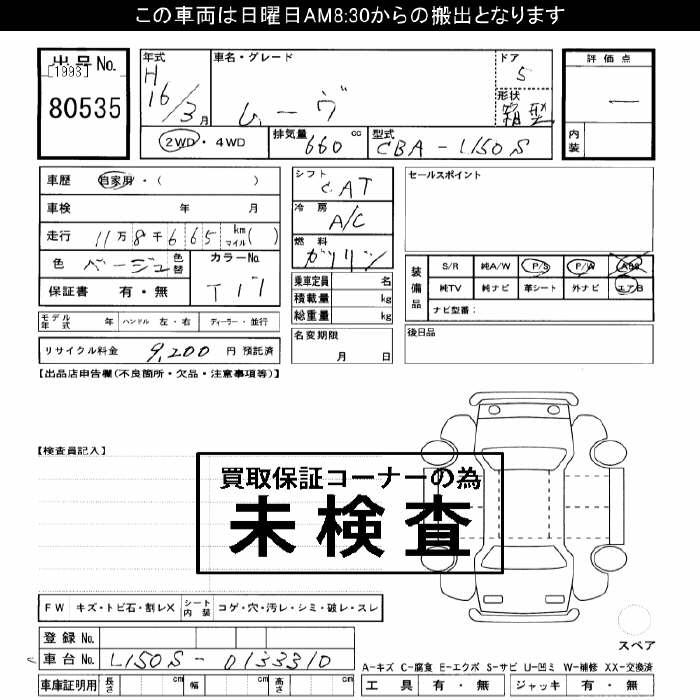 この車両は日曜日AM8:30からの搬出となります
出品No.
[1993]
80535
年式
H
16/3月
車名・グレード
ムーヴ
ドア
5
形状
箱型
評価点
内装
2WD・4WD
排気量
660 cc
型式
CBA-L150S
車歴 自家用・( )
車検 年 月
走行 11万8千665 km マイル( )
色 ベージュ 色替
カラーNo.
T17
保証書 有・無
モデル年式 年 ハンドル 左・右 ディーラー・並行
リサイクル料金 9,200 円 預託済
シフト
CAT
冷房
A/C
燃料
ガソリン
乗車定員 名
積載量 kg
総重量 kg
名変期限
月 日
セールスポイント
装備品
S/R 純A/W P/S P/W ABS
純TV 純ナビ 革シート 外ナビ エアB
ナビ型番:
後日品
【出品店申告欄(不良箇所・欠品・注意事項等)】
【検査員記入】
買取保証コーナーの為
未検査
FW キズ・トビ石・割レX シート内装 コゲ・穴・汚レ・シミ・破レ・スレ
登録No.
車台No. L150S-0133310
車庫証明用 長さ cm 幅 cm 高さ cm
スペア
A-キズ C-腐食 E-エクボ S-サビ U-凹ミ W-補修 XX-交換済
工具 有・無 ジャッキ 有・無